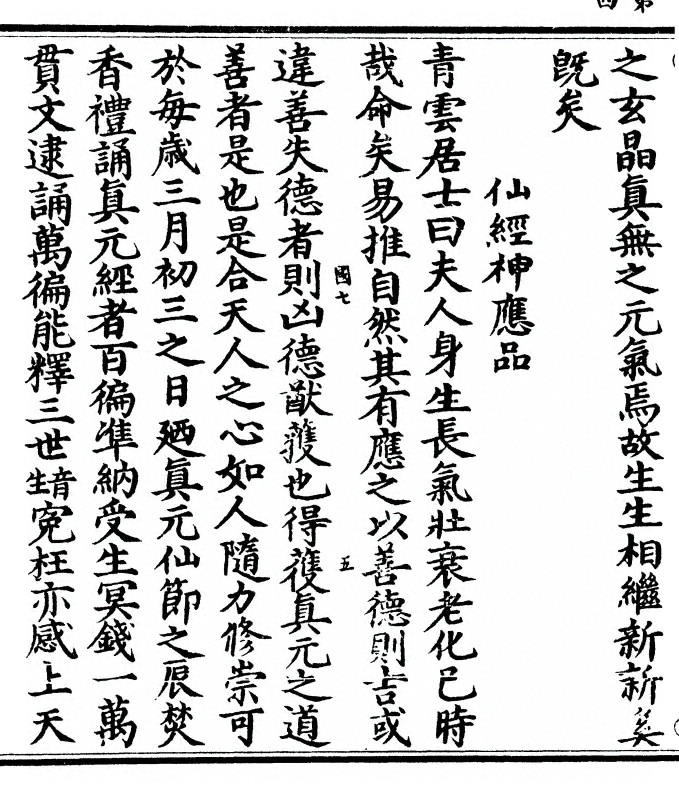 之玄晶真無之元氣焉故生生相繼新新奚
既矣
仙經神應品
青雲居士曰夫人身生長氣壯衰老化已時
哉命矣易推自然其有應之以善德則吉或
違善失德者則凶德猷䕶也得䕶真元之道
國七
五
善者是也是合天人之心如人隨力修崇可
於每歲三月初三之日廼真元仙節之辰焚
香禮誦真元經者百徧准納受生冥錢一萬
貫文逮誦萬徧能釋三世眚冤枉亦感上天